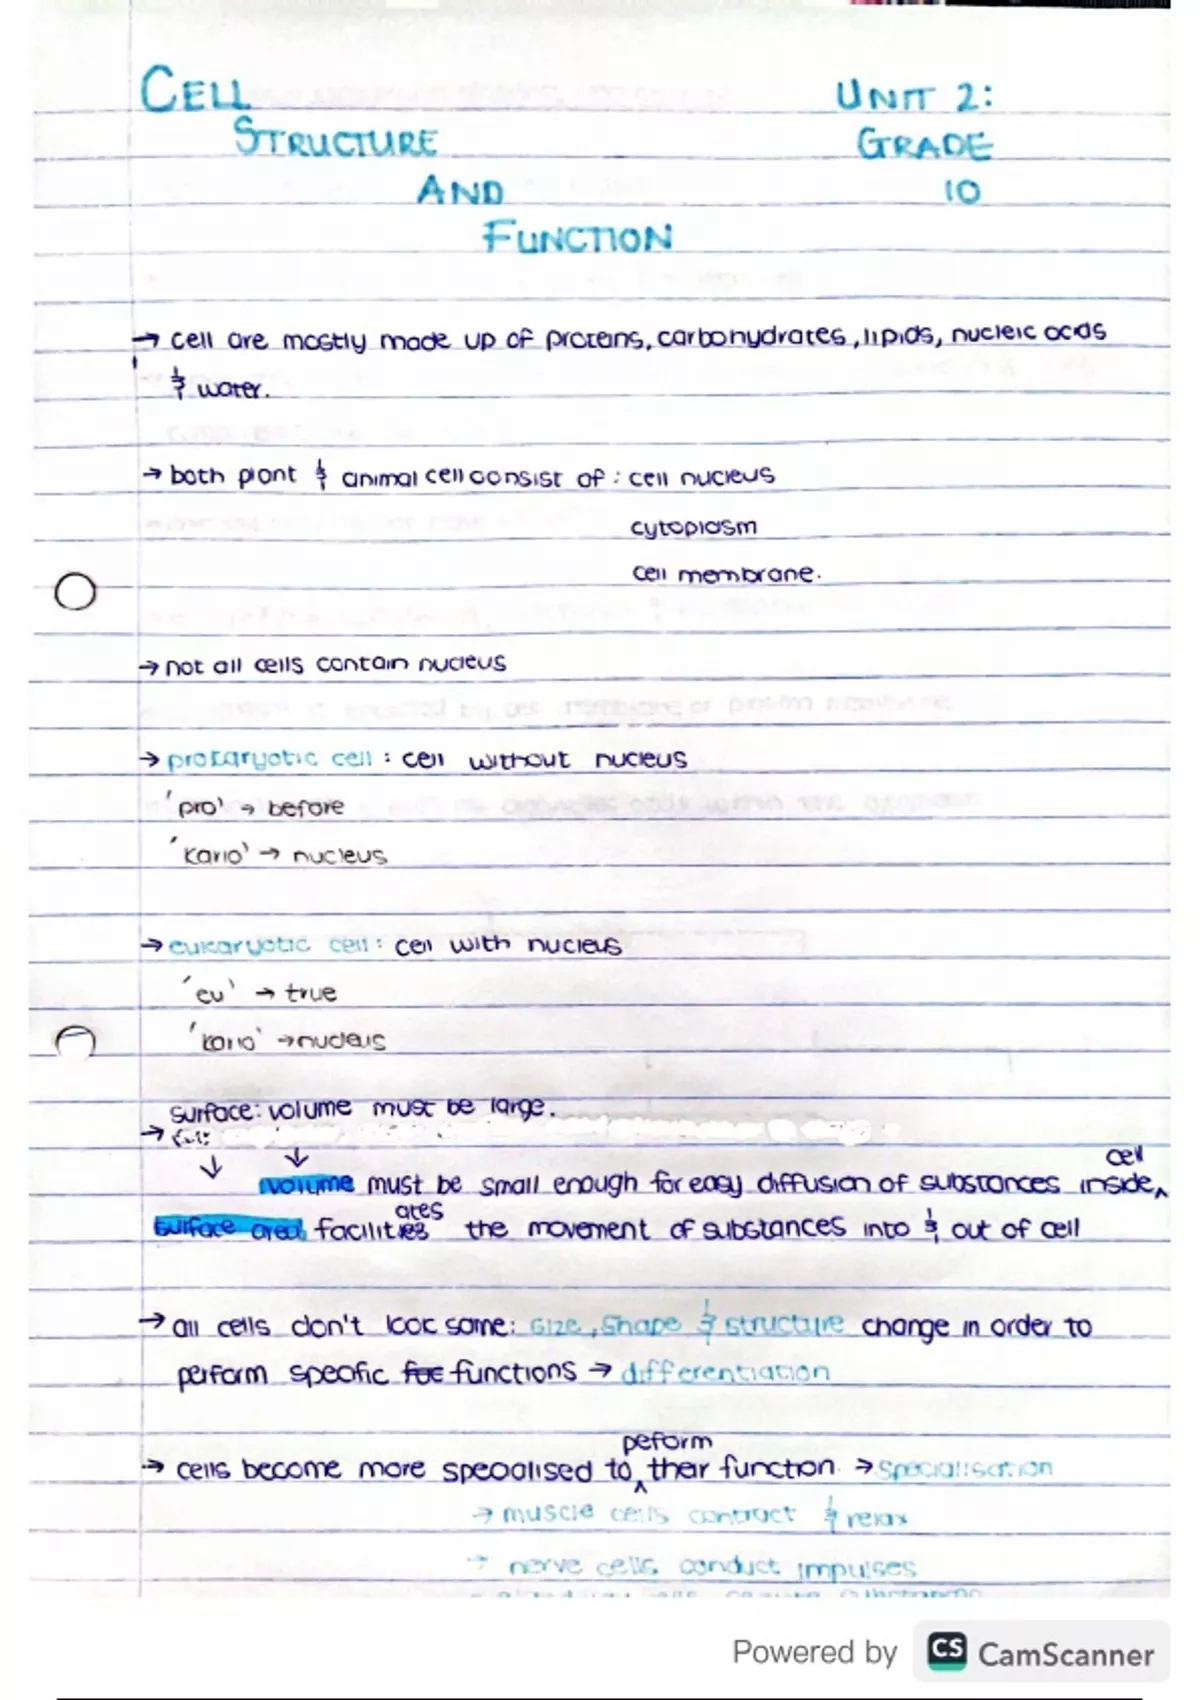 CELL
STRUCTURE
AND
FUNCTION
UNIT 2:
GRADE
10
→ cell are mostly made up of proteins, carbohydrates, lipids, nucleic acids
& water.
→ both plant & animal cell consist of : cell nucleus
cytoplasm
cell membrane.
→ not all cells contain nucleus
→ prokaryotic cell : cell without nucleus
'pro' → before
'kario' → nucleus
→ eukaryotic cell : cell with nucleus
'eu' → true
'kario' → nucleus
surface: volume must be large.
→
↓ ↓
volume must be small enough for easy diffusion of substances inside cell,
surface area facilitates the movement of substances into & out of cell
→ all cells don't look same: size, shape & structure change in order to
perform specific fuc functions → differentiation
→ cells become more specialised to peform their function. → specialisation
→ muscle cells contract & relax
→ nerve cells conduct impulses
Powered by CS CamScanner